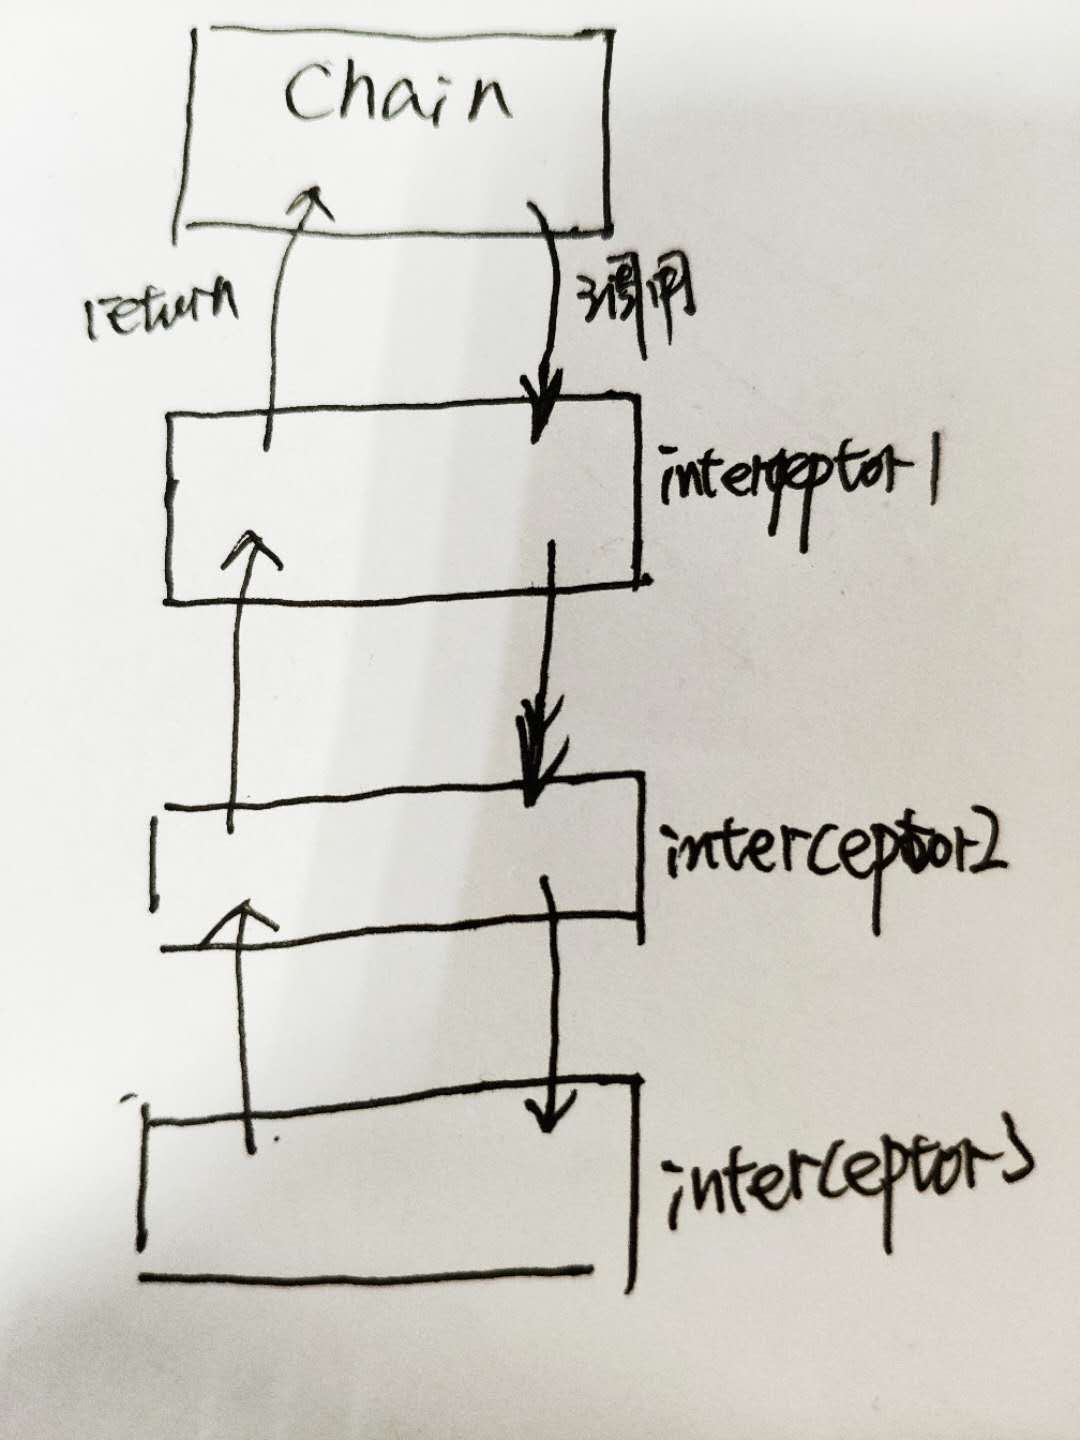 Chain
return
调用
interceptor1
interceptor2
interceptor3